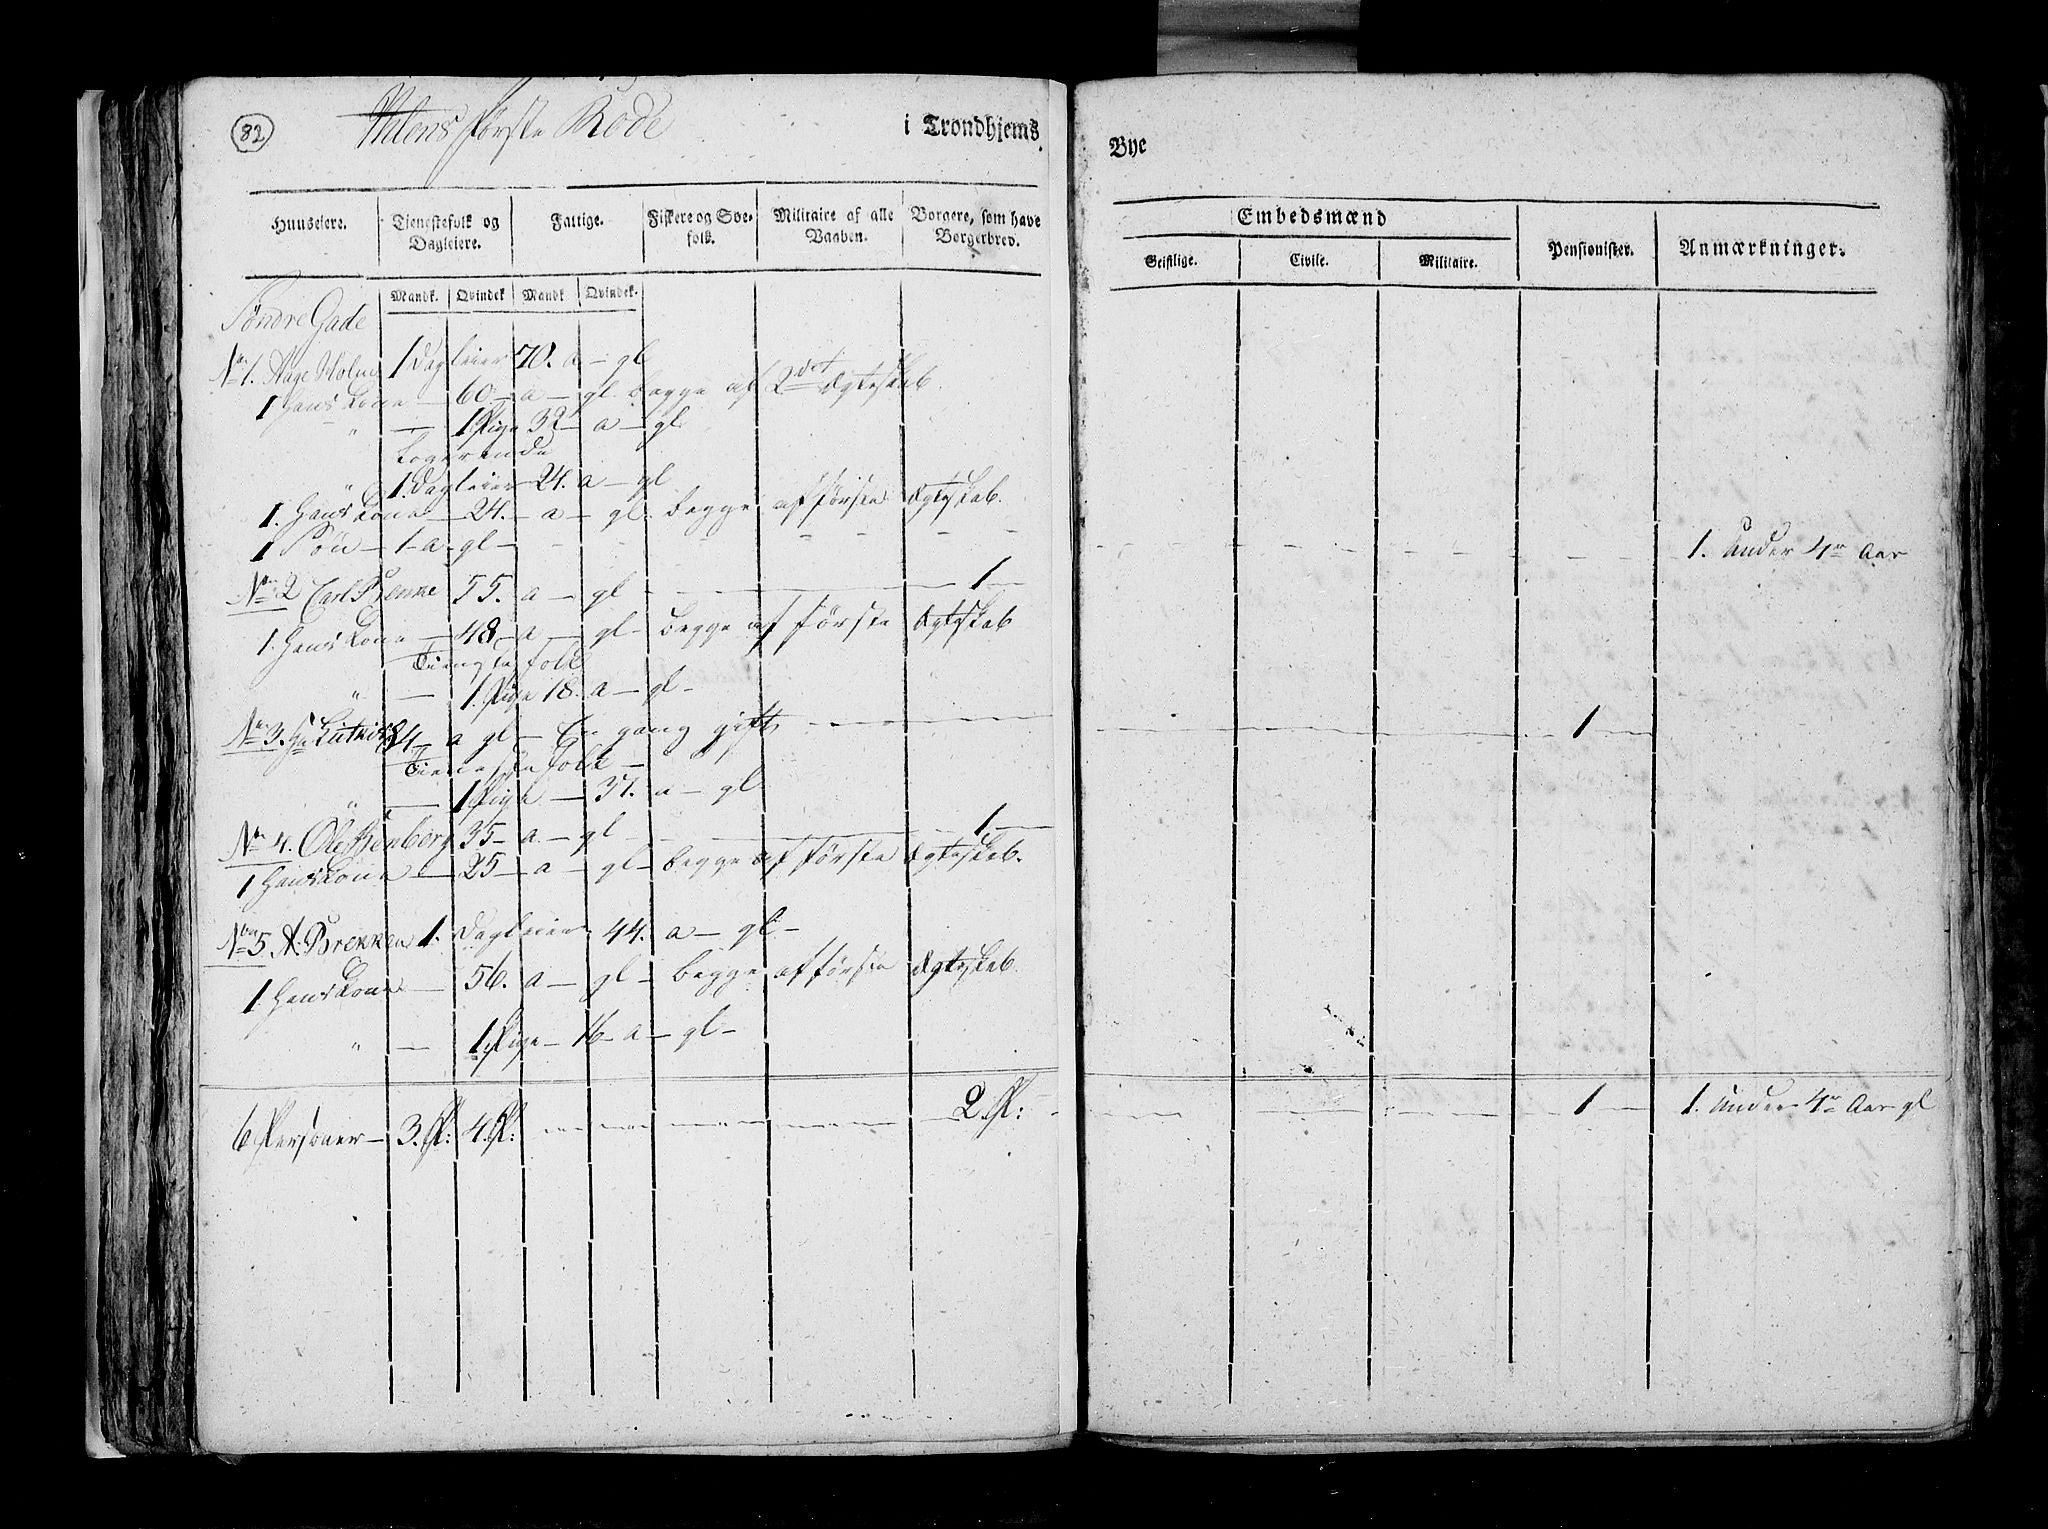 82
Ihlens første Rode i Trondhjems Bye
Huuseiere. Tjenestefolk og Dagleiere. Fattige. Fiskere og Søefolk. Militaire af alle Vaaben. Borgere, som have Borgerbrev. Embedsmænd Pensionister. Anmærkninger.
Geistlige. Civile. Militaire.
Mandk. Qvindek Mandk Qvindek.
Søndre Gade
No 1. Aage Holm 1 Dagleier 70. a – gl
1 Hans Kone – 60 – a – gl. begge af 2det Ægteskab.
" — 1 Pige 32 – a – gl
Logerende
" 1. Dagleier – 24. a – gl
1. Hans Kone – 24. – a – gl. begge af første Ægteskab.
1 Søn – 1 – a – gl – 1. under 4re Aar
No 2 Carl 55. a – gl – 1 –
1. Hans Kone – 48 – a – gl – begge af første Ægteskab
Tienestefolk
" — 1. Pige 18. a – gl –
No 3. 84 – a gl – En gang gift – 1 –
Tienestefolk –
" — 1 Pige – 37. a – gl
No 4. Ole Stenberg 35 – a – gl – 1 –
1 Hans Kone – 25 – a – gl – begge af første Ægteskab.
No 5 A. Brekken 1. Dagleier 44. a – gl –
1. Hans Kone – 56. a – gl – begge af første Ægteskab.
" — 1 Pige – 16 – a – gl –
6 Personer – 3. P: 4. P: – 2 P: – 1 – 1. under 4re Aar gl